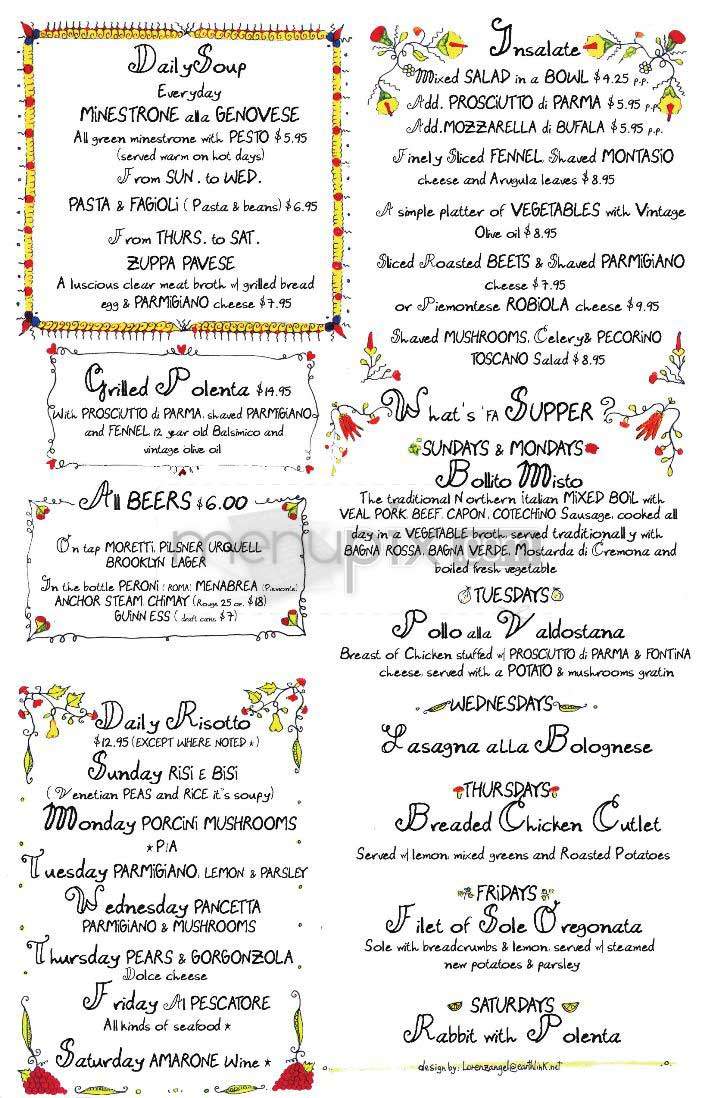 Daily Soup
Everyday
MINESTRONE alla GENOVESE
All green minestrone with PESTO $5.95
(served warm on hot days)
From SUN. to WED.
PASTA & FAGIOLI ( Pasta & beans) $6.95
From THURS. to SAT.
ZUPPA PAVESE
A luscious clear meat broth w/ grilled bread
egg & PARMIGIANO cheese $7.95
Grilled Polenta $14.95
With PROSCIUTTO di PARMA, shaved PARMIGIANO
and FENNEL 12 year old Balsimico and
vintage olive oil
All BEERS $6.00
On tap MORETTI, PILSNER URQUELL
BROOKLYN LAGER
In the bottle PERONI (ROMA) MENABREA (Piemonte)
ANCHOR STEAM, CHIMAY (Rouge 25 oz. $18)
GUINNESS ( draft cans, $7)
Daily Risotto
$12.95 (EXCEPT WHERE NOTED *)
Sunday RISI E BISI
( Venetian PEAS and RICE it's soupy)
Monday PORCINI MUSHROOMS
* P/A
Tuesday PARMIGIANO, LEMON & PARSLEY
Wednesday PANCETTA
PARMIGIANO & MUSHROOMS
Thursday PEARS & GORGONZOLA
Dolce cheese
Friday Al PESCATORE
All kinds of seafood *
Saturday AMARONE Wine *
Insalate
Mixed SALAD in a BOWL $4.25 p.p.
Add. PROSCIUTTO di PARMA $5.95 p.p.
Add. MOZZARELLA di BUFALA $5.95 p.p.
Finely Sliced FENNEL, Shaved MONTASIO
cheese and Arugula leaves $8.95
A simple platter of VEGETABLES with Vintage
Olive oil $8.95
Sliced Roasted BEETS & Shaved PARMIGIANO
cheese $7.95
or Piemontese ROBIOLA cheese $9.95
Shaved MUSHROOMS, Celery& PECORINO
TOSCANO Salad $8.95
What's 'FA SUPPER
SUNDAYS & MONDAYS
Bollito Misto
The traditional Northern italian MIXED BOIL with
VEAL PORK, BEEF, CAPON, COTECHINO Sausage, cooked all
day in a VEGETABLE broth, served traditionally with
BAGNA ROSSA, BAGNA VERDE, Mostarda di Cremona and
boiled fresh vegetable
TUESDAYS
Pollo alla Valdostana
Breast of Chicken stuffed w/ PROSCIUTTO di PARMA & FONTINA
cheese, served with a POTATO & mushrooms gratin
WEDNESDAYS
Lasagna alla Bolognese
THURSDAYS
Breaded Chicken Cutlet
Served w/ lemon, mixed greens and Roasted Potatoes
FRIDAYS
Filet of Sole Oregonata
Sole with breadcrumbs & lemon, served w/ steamed
new potatoes & parsley
SATURDAYS
Rabbit with Polenta
design by: Lorenzangel@earthlink.net
menupix.com